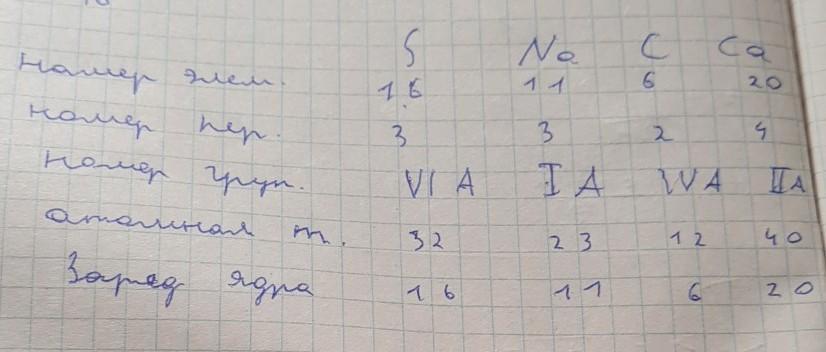 S Na C Ca
номер элем. 16 11 6 20
номер пер. 3 3 2 4
номер груп. VI A I A IV A II A
атомная m. 32 23 12 40
Заряд ядра 16 11 6 20